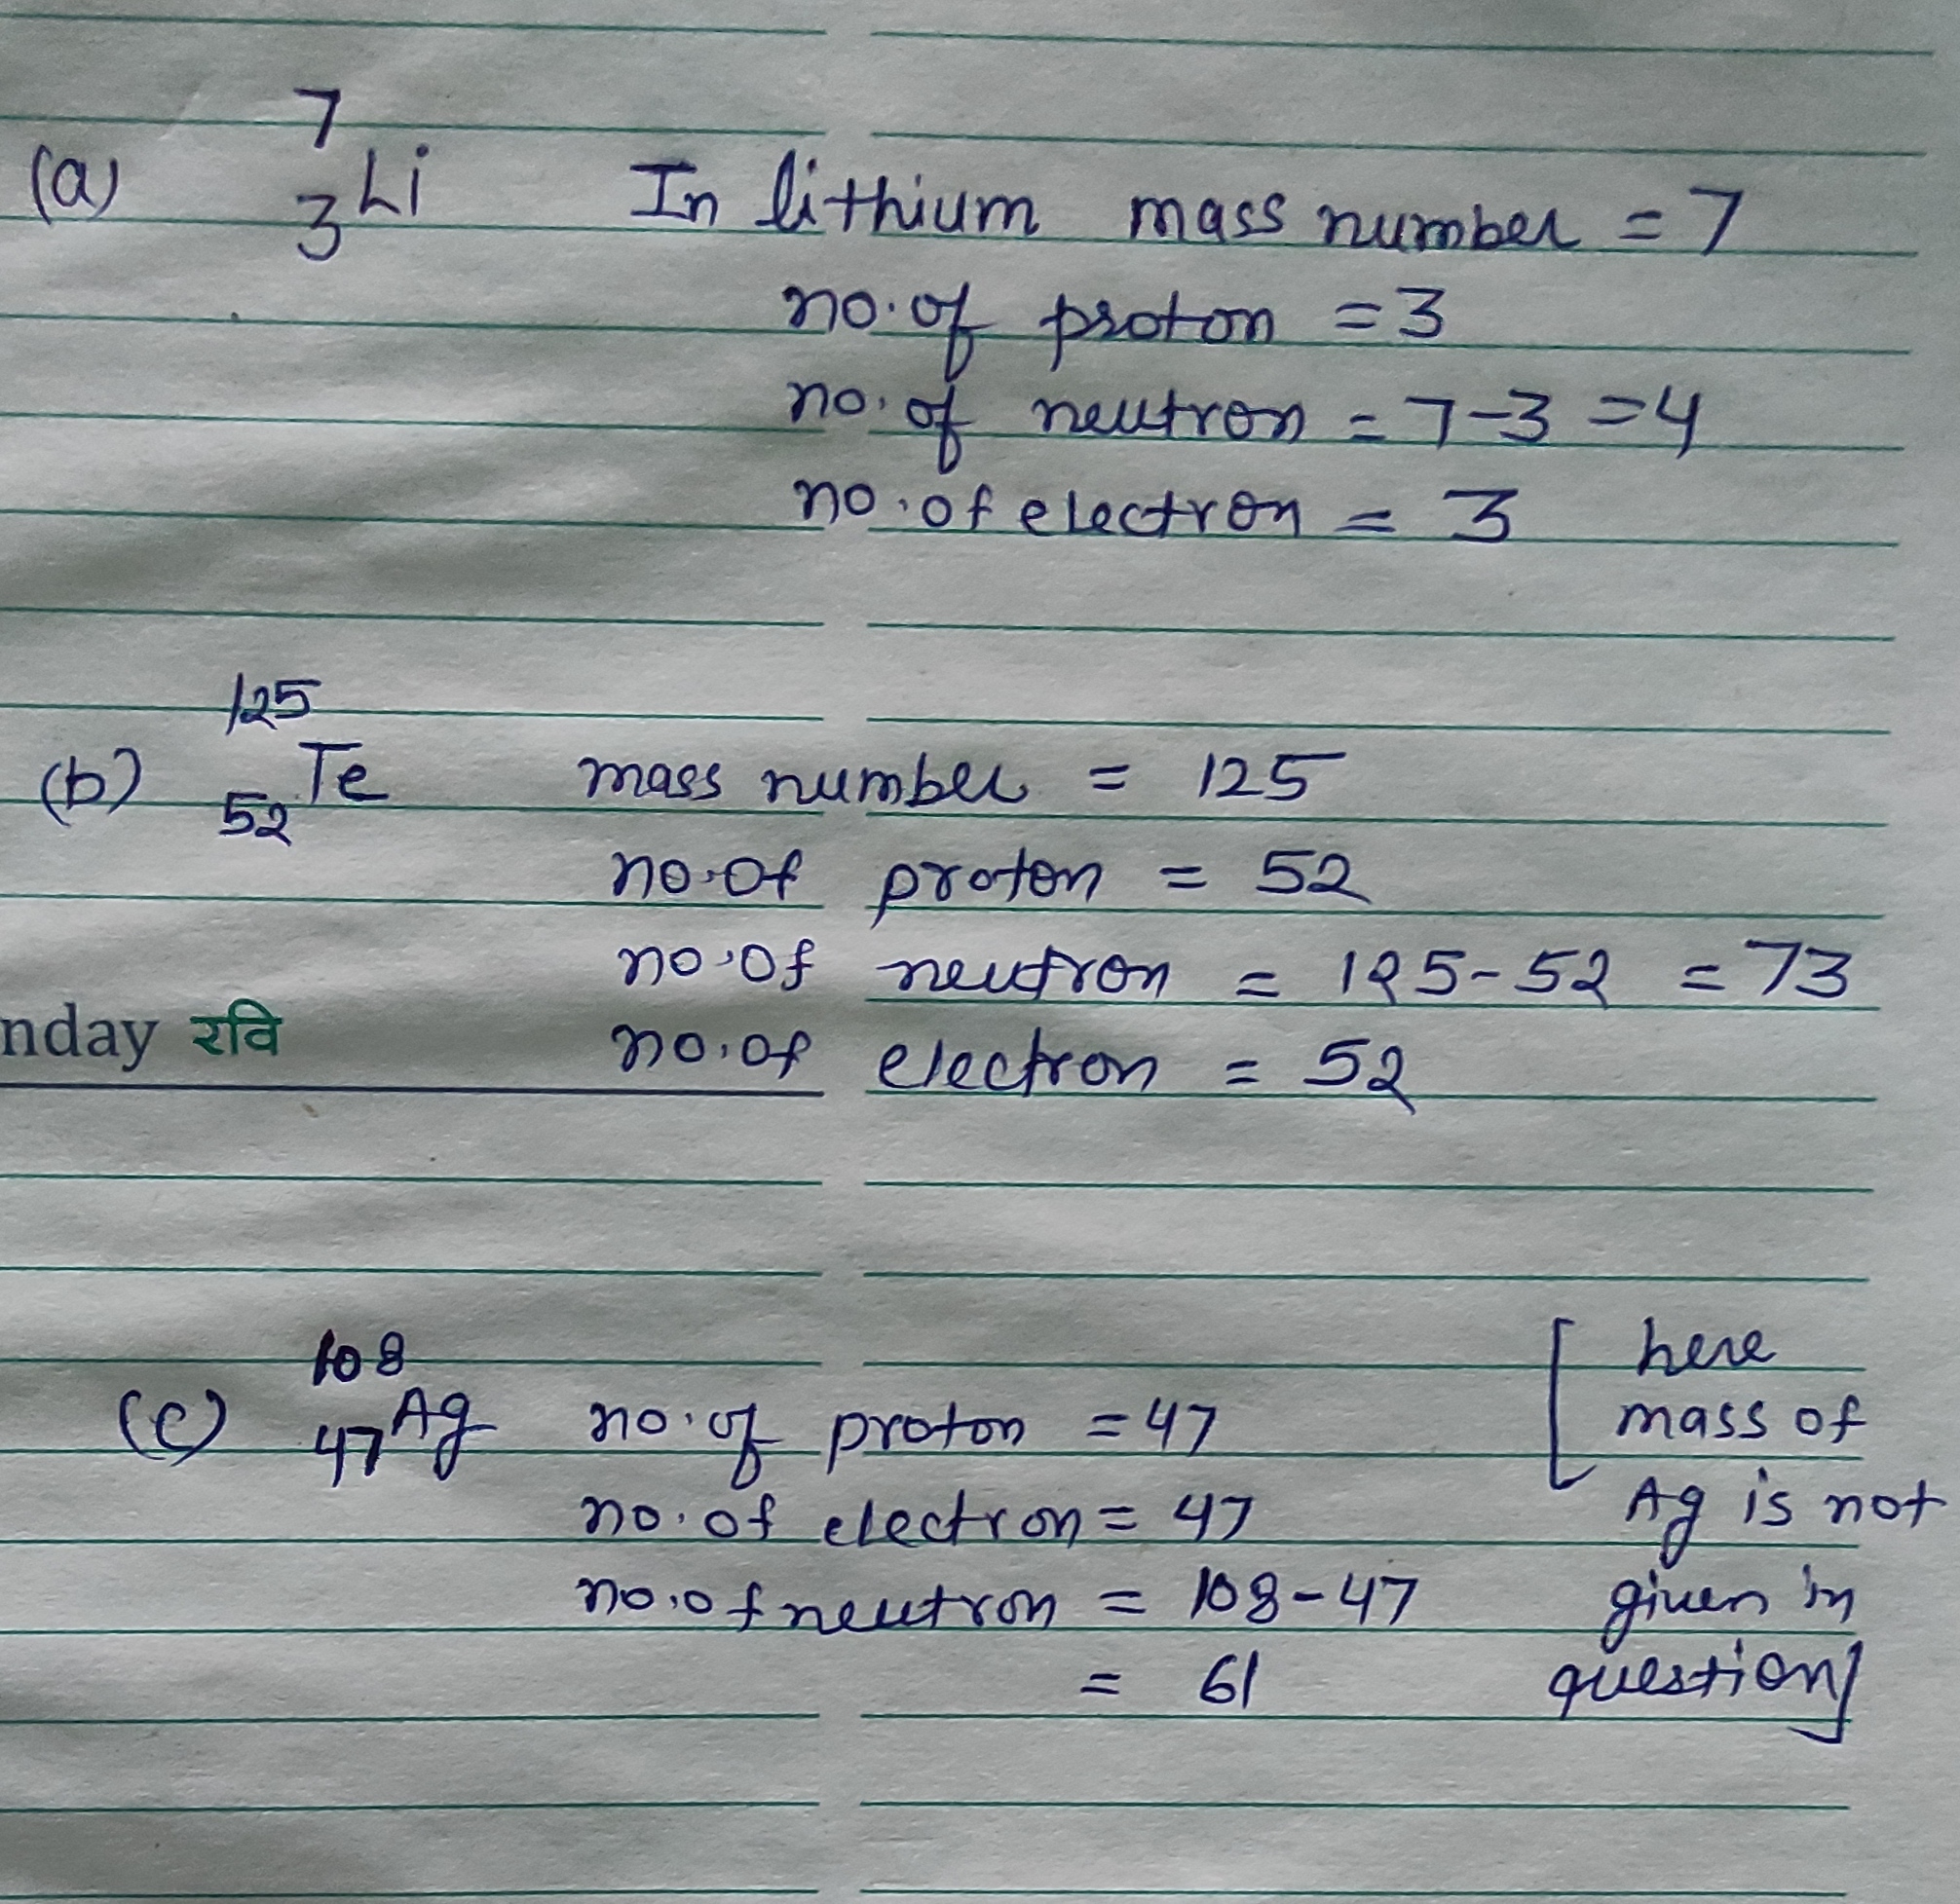 7
(a) 3Li In lithium mass number = 7
no. of proton = 3
no. of neutron = 7-3 = 4
no. of electron = 3
125
(b) 52Te mass number = 125
no. of proton = 52
no. of neutron = 125-52 = 73
nday रवि
no. of electron = 52
108
(c) 47Ag no. of proton = 47
no. of electron = 47
no. of neutron = 108-47
= 61
[ here
mass of
Ag is not
given in
question]